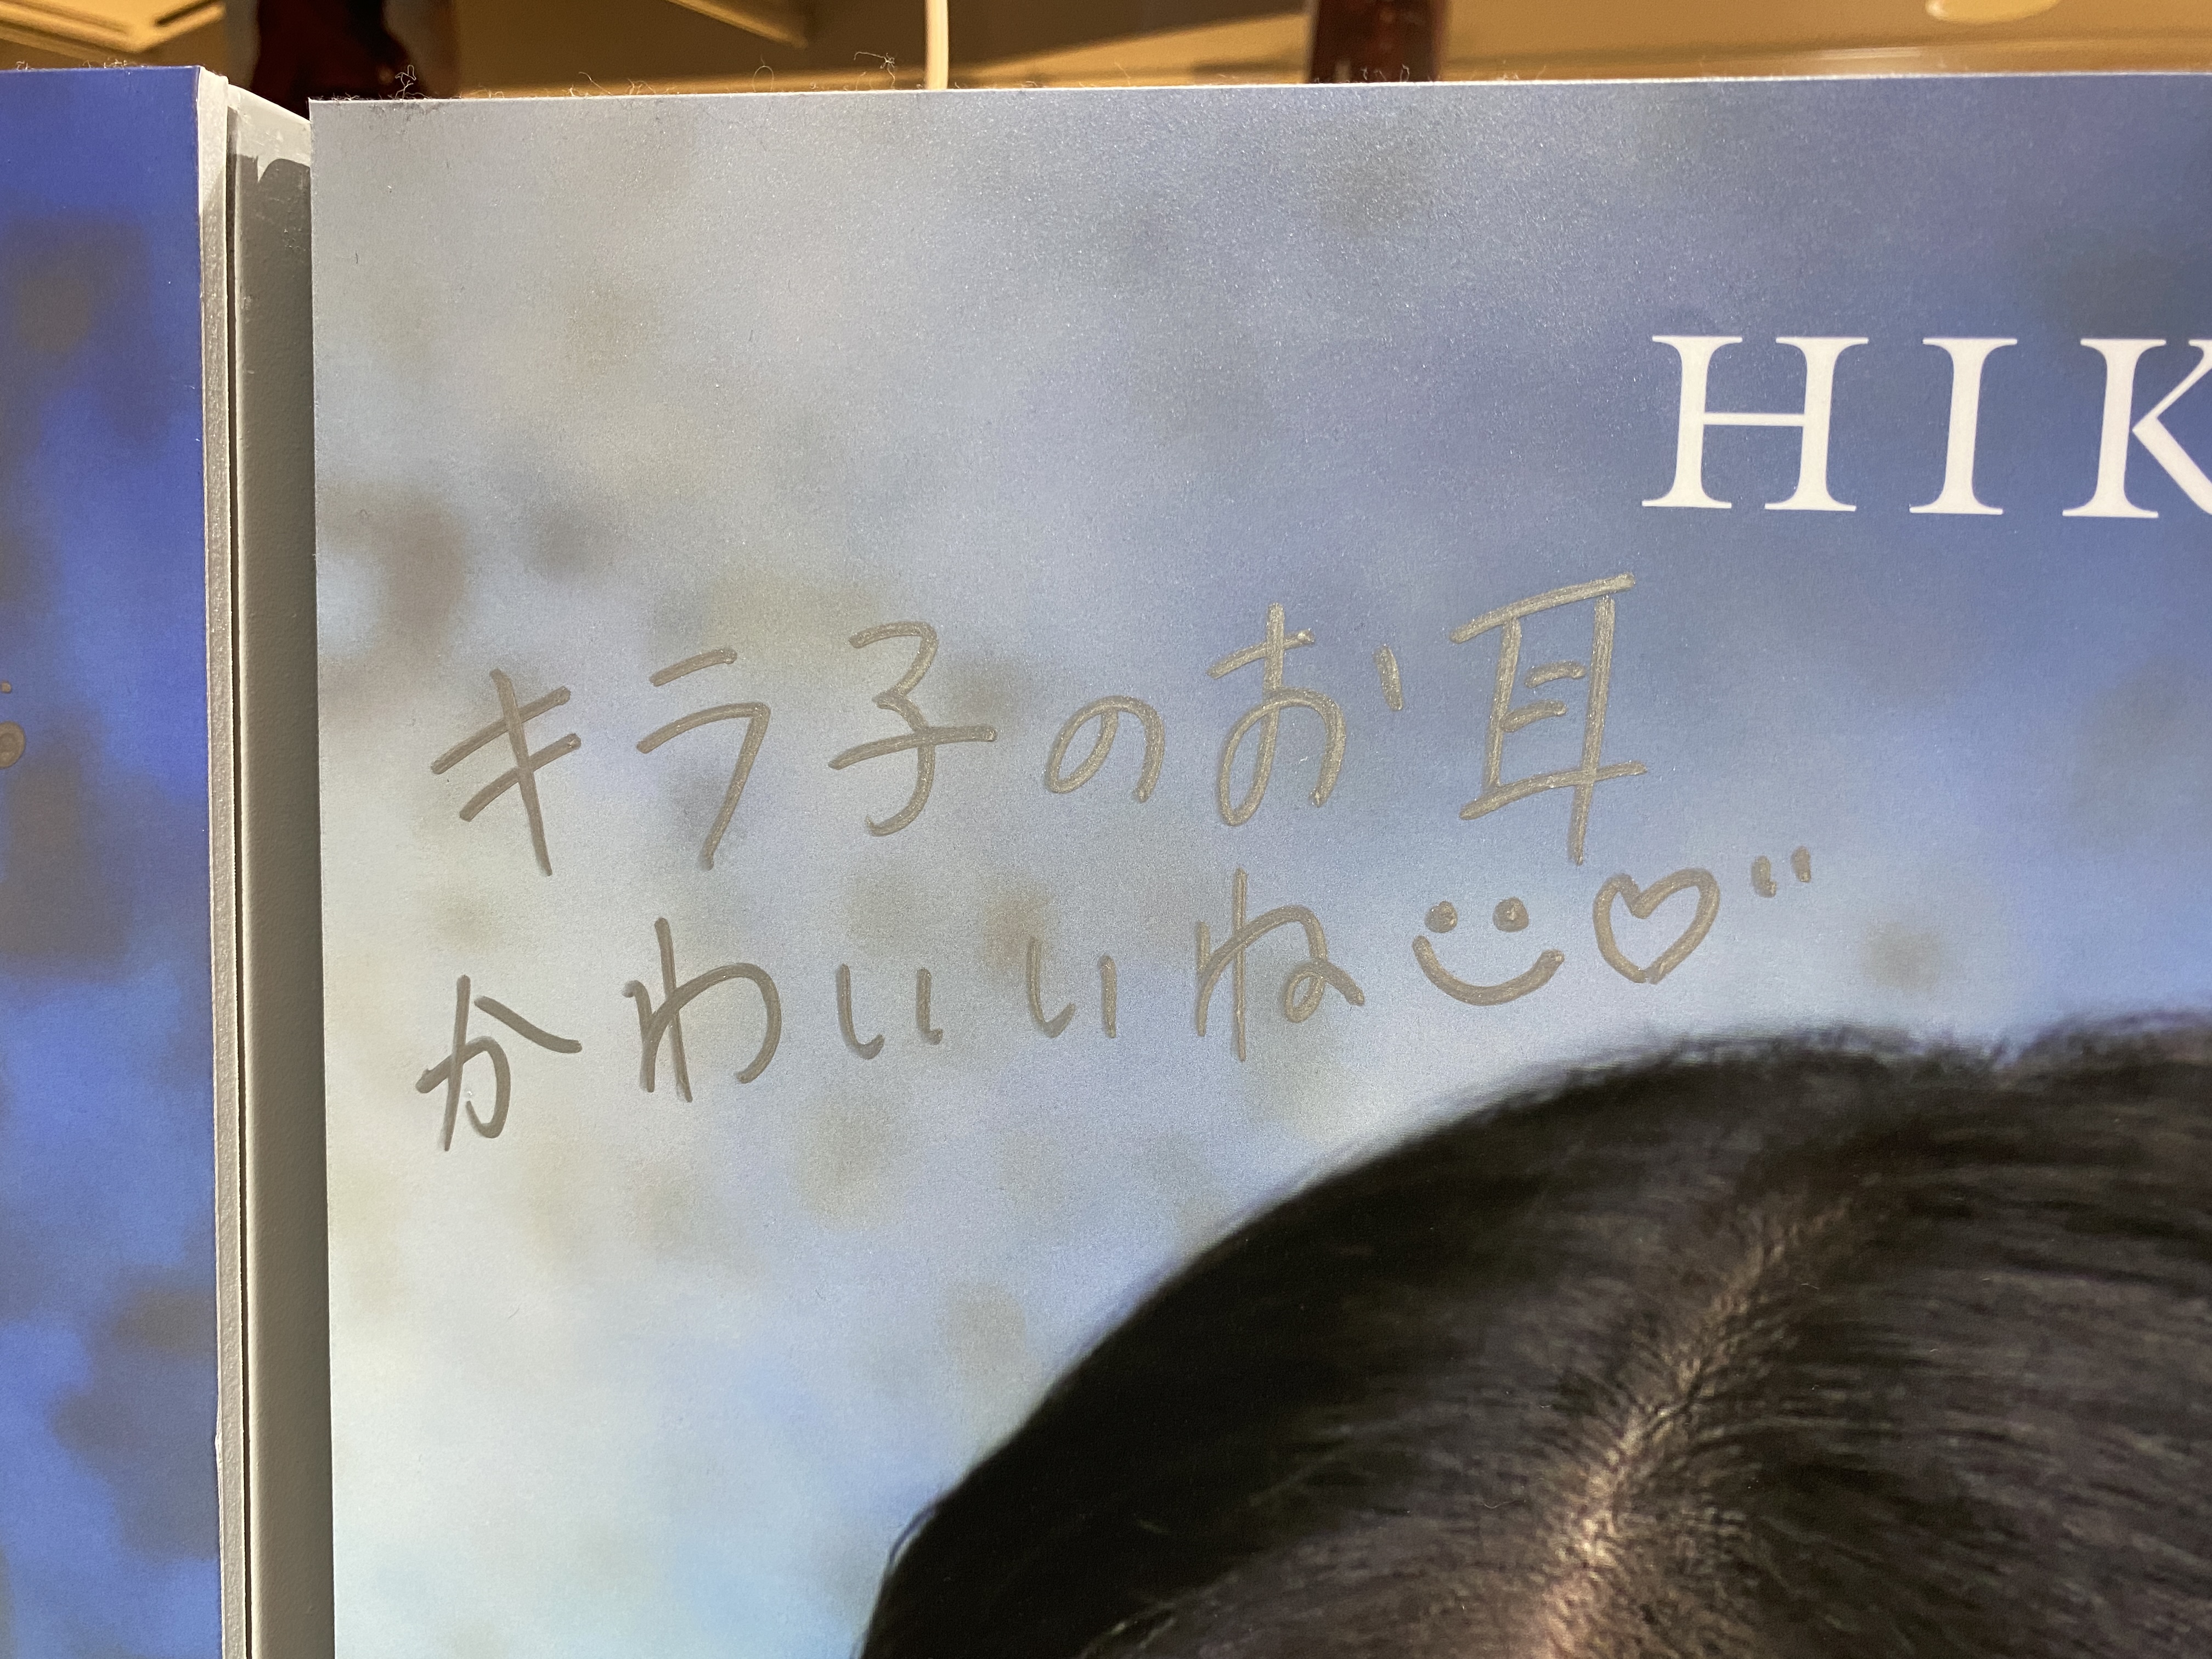 HIK
キラ子のお耳
かわいいね♡"